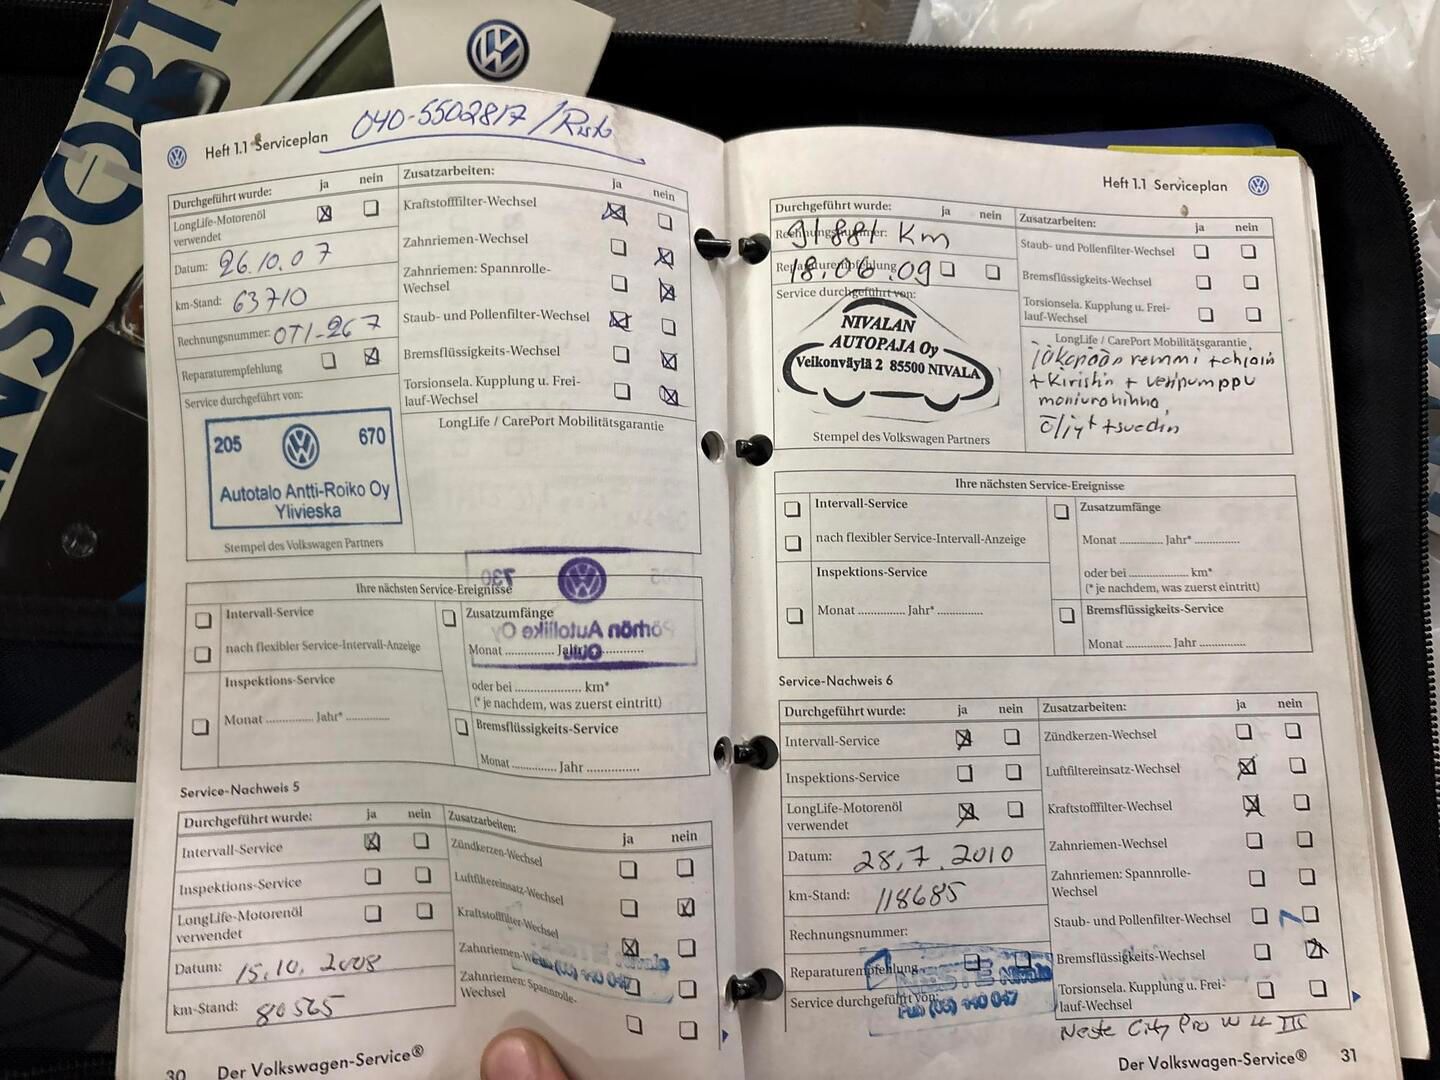 NSPORT
040-5502817 / Risto
Heft 1.1 Serviceplan
Durchgeführt wurde: ja nein
LongLife-Motorenöl
verwendet
Datum: 26.10.07
km-Stand: 63710
Rechnungsnummer: OT1-267
Reparaturempfehlung
Service durchgeführt von:
205 670
Autotalo Antti-Roiko Oy
Ylivieska
Stempel des Volkswagen Partners
Zusatzarbeiten: ja nein
Kraftstofffilter-Wechsel
Zahnriemen-Wechsel
Zahnriemen: Spannrolle-
Wechsel
Staub- und Pollenfilter-Wechsel
Bremsflüssigkeits-Wechsel
Torsionsela. Kupplung u. Frei-
lauf-Wechsel
LongLife / CarePort Mobilitätsgarantie
Ihre nächsten Service-Ereignisse
Intervall-Service
nach flexibler Service-Intervall-Anzeige
Inspektions-Service
Monat .............. Jahr* ..............
Zusatzumfänge
Monat .............. Jahr* ..............
oder bei ..................... km*
(* je nachdem, was zuerst eintritt)
Bremsflüssigkeits-Service
Monat .............. Jahr ................
730
Pörhön Autoliike Oy
Oulu
Service-Nachweis 5
Durchgeführt wurde: ja nein
Intervall-Service
Inspektions-Service
LongLife-Motorenöl
verwendet
Datum: 15.10.2008
km-Stand: 80565
Zusatzarbeiten: ja nein
Zündkerzen-Wechsel
Luftfiltereinsatz-Wechsel
Kraftstofffilter-Wechsel
Zahnriemen-Wechsel
Zahnriemen: Spannrolle-
Wechsel
30 Der Volkswagen-Service®
Heft 1.1 Serviceplan
Durchgeführt wurde: ja nein
Rechnungsnummer: 91881 Km
Reparaturempfehlung 18.06.09
Service durchgeführt von:
NIVALAN
AUTOPAJA Oy
Veikonväylä 2 85500 NIVALA
Stempel des Volkswagen Partners
Zusatzarbeiten: ja nein
Staub- und Pollenfilter-Wechsel
Bremsflüssigkeits-Wechsel
Torsionsela. Kupplung u. Frei-
lauf-Wechsel
LongLife / CarePort Mobilitätsgarantie
jakopään remmi +
+ Kiristin + vesipumppu
moniurahihna,
öljyt + suodin
Ihre nächsten Service-Ereignisse
Intervall-Service
nach flexibler Service-Intervall-Anzeige
Inspektions-Service
Monat .............. Jahr* ..............
Zusatzumfänge
Monat .............. Jahr* ..............
oder bei ..................... km*
(* je nachdem, was zuerst eintritt)
Bremsflüssigkeits-Service
Monat .............. Jahr ................
Service-Nachweis 6
Durchgeführt wurde: ja nein
Intervall-Service
Inspektions-Service
LongLife-Motorenöl
verwendet
Datum: 28.7.2010
km-Stand: 118685
Rechnungsnummer:
Reparaturempfehlung
Service durchgeführt von:
NESTE Nivala
Puh (08) 440 047
Zusatzarbeiten: ja nein
Zündkerzen-Wechsel
Luftfiltereinsatz-Wechsel
Kraftstofffilter-Wechsel
Zahnriemen-Wechsel
Zahnriemen: Spannrolle-
Wechsel
Staub- und Pollenfilter-Wechsel
Bremsflüssigkeits-Wechsel
Torsionsela. Kupplung u. Frei-
lauf-Wechsel
Neste City Pro W LL III
Der Volkswagen-Service® 31